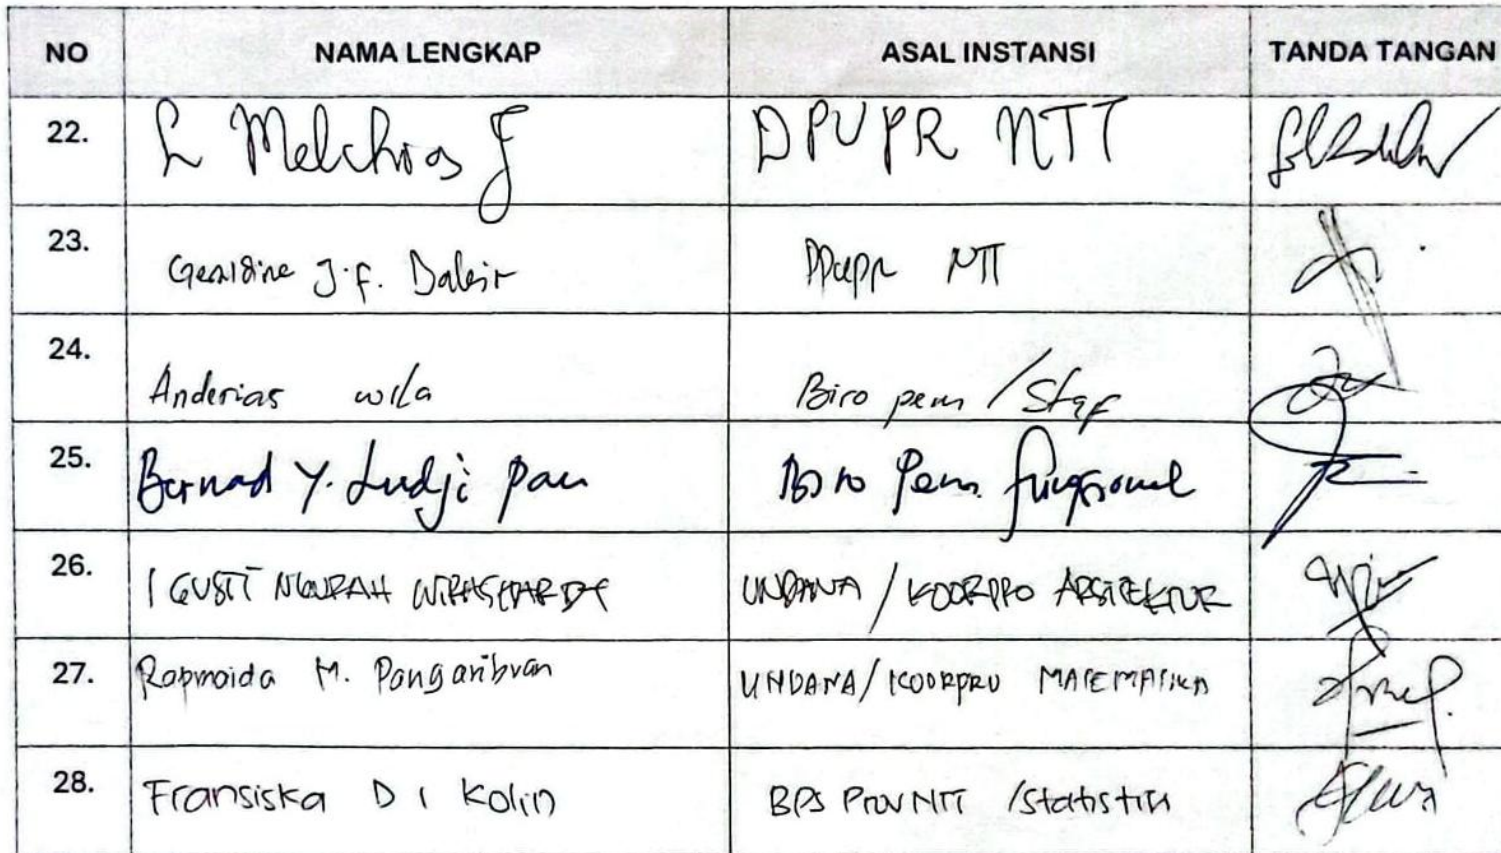 NO NAMA LENGKAP ASAL INSTANSI TANDA TANGAN
22. L Melchios F DPUPR NTT
23. Geraldine J.F. Daleir DPupr NTT
24. Anderias wila Biro pem / Staf
25. Bernad Y. Ludji Pau Biro Pem. fungsional
26. I GUSTI NGURAH WIRASWARDI UNDANA / KOORPRO ARSITEKTUR
27. Rapmaida M. Pangaribuan UNDANA / KOORPRO MATEMATIKA
28. Fransiska D I Kolin BPS Prov NTT / Statistik